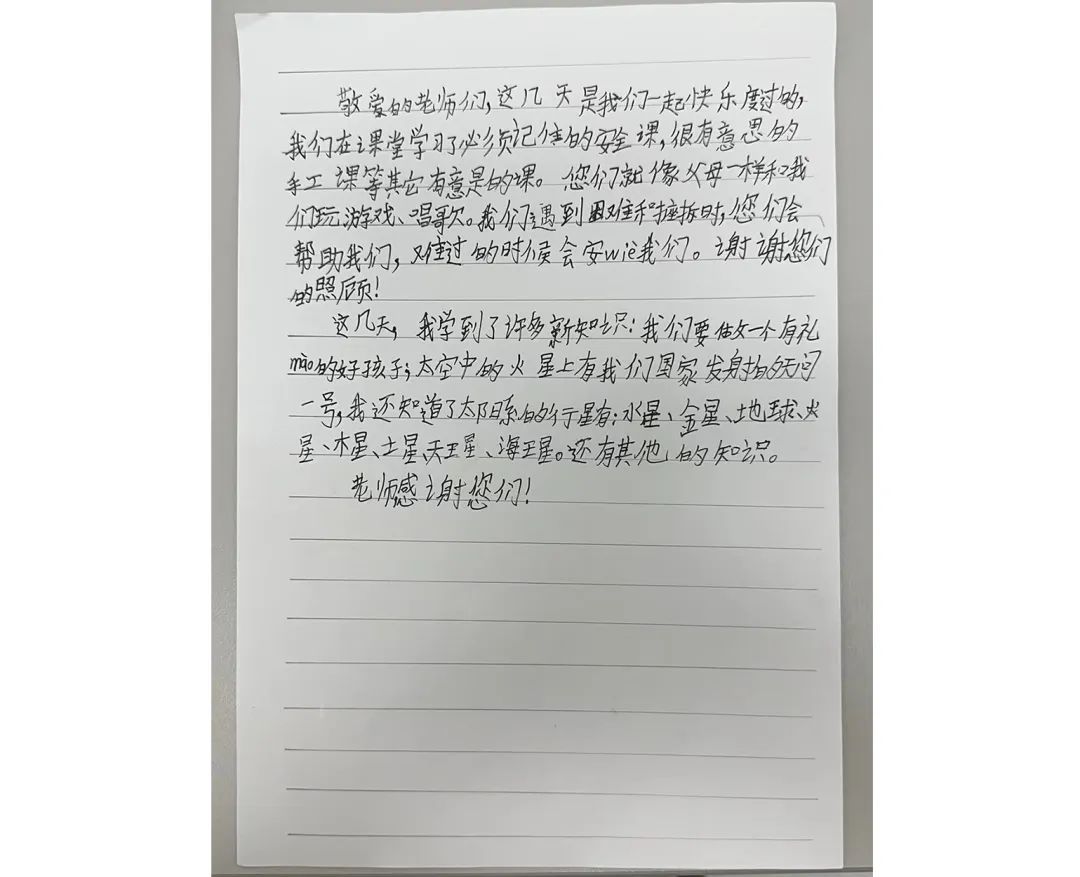 敬爱的老师们,这几天是我们一起快乐度过的,
我们在课堂学习了必须记住的安全课,很有意思的
手工课等其它有意是的课。您们就像父母一样和我
们玩游戏、唱歌。我们遇到困难和挫折时,您们会
帮助我们,难过的时候会安wèi我们。谢谢您们
的照顾!
这几天,我学到了许多新知识:我们要做一个有礼
mào的好孩子;太空中的火星上有我们国家发射的天问
一号,我还知道了太阳系的行星有:水星、金星、地球、火
星、木星、土星、天王星、海王星。还有其他的知识。
老师感谢您们!